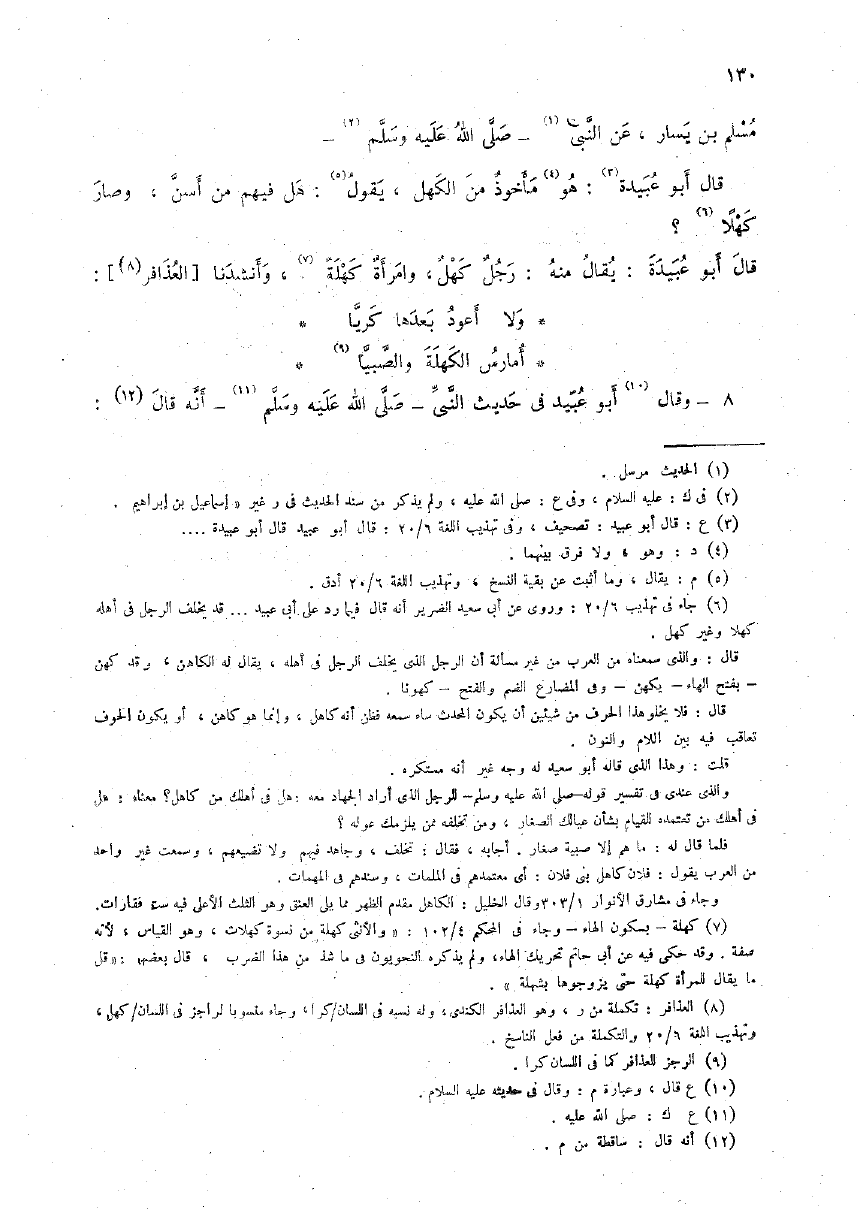 ١٣٠
مُسْلم بن يَسار ، عَن النَّبىّ (١) – صَلَّى اللهُ عَلَيه وسَلَّم (٢) –
قال أَبو عُبَيدة (٣) : هُو (٤) مَأخوذٌ منَ الكَهل ، يَقولُ (٥) : هَل فيهم من أَسنَّ ، وصارَ
كَهْلًا (٦) ؟
قالَ أَبو عُبَيدَةَ : يُقالُ منهُ : رَجُلٌ كَهْلٌ ، وامرَأَةٌ كَهْلَةٌ (٧) ، وَأَنشدَنا [ العُذافر (٨) ] :
* وَلا أَعودُ بَعدَها كَريَّا *
* أُمارسُ الكَهلَةَ والصَّبيَّا (٩) *
٨ – وقال (١٠) أَبو عُبَيد فى حَديث النَّبيِّ – صَلَّى الله عَلَيه وسَلَّم (١١) – أَنَّه قالَ (١٢) :
(١) الحديث مرسل .
(٢) فى ك : عليه السلام ، وفى ع : صلى الله عليه ، ولم يذكر من سند الحديث فى ر غير « إسماعيل بن إبراهيم .
(٣) ع : قال أبو عبيد : تصحيف ، وفى تهذيب اللغة ٢٠/٦ : قال أبو عبيد قال أبو عبيدة ....
(٤) د : وهو ، ولا فرق بينهما .
(٥) م : يقال ، وما أثبت عن بقية النسخ ، وتهذيب اللغة ٢٠/٦ أدق .
(٦) جاء فى تهذيب ٢٠/٦ : وروى عن أبى سعيد الضرير أنه قال فيما رد على أبى عبيد ... قد يخلف الرجل فى أهله
كهلا وغير كهل .
قال : والذى سمعناه من العرب من غير مسألة أن الرجل الذى يخلف الرجل فى أهله ، يقال له الكاهن ، وقد كهن
– بفتح الهاء – يكهن – وفى المضارع الضم والفتح – كهونا .
قال : فلا يخلو هذا الحرف من شيئين أن يكون المحدث ساء سمعه فظن أنه كاهل ، وإنما هو كاهن ، أو يكون الحرف
تعاقب فيه بين اللام والنون .
قلت : وهذا الذى قاله أبو سعيد له وجه غير أنه مستكره .
والذى عندى فى تفسير قوله–صلى الله عليه وسلم– للرجل الذى أراد الجهاد معه : هل فى أهلك من كاهل؟ معناه : هل
فى أهلك من تعتمده القيام بشأن عيالك الصغار ، ومن تخلفه ممن يلزمك عوله ؟
فلما قال له : ما هم إلا صبية صغار . أجابه ، فقال : تخلف ، وجاهد فيهم ولا تضيعهم ، وسمعت غير واحد
من العرب يقول : فلان كاهل بنى فلان : أى معتمدهم فى الملمات ، وسندهم فى المهمات .
وجاء فى مشارق الأنوار ٣٠٣/١وقال الخليل : الكاهل مقدم الظهر مما يلى العنق وهو الثلث الأعلى فيه ست فقارات.
(٧) كهلة – بسكون الهاء – وجاء فى المحكم ١٠٢/٤ : « والأنثى كهلة من نسوة كهلات ، وهو القياس ، لأنه
صفة . وقد حكى فيه عن أبى حاتم تحريك الهاء، ولم يذكره النحويون فى ما شذ من هذا الضرب ، قال بعضهم :« قل
ما يقال للمرأة كهلة حتى يزوجوها بشهلة » .
(٨) العذافر : تكملة من ر ، وهو العذافر الكندى، وله نسبه فى اللسان/كرا، وجاء منسوبا لراجز فى اللسان/كهل ،
وتهذيب اللغة ٢٠/٦ والتكملة من فعل الناسخ .
(٩) الرجز للعذافر كما فى اللسان كرا .
(١٠) ع قال ، وعبارة م : وقال فى حديثه عليه السلام .
(١١) ع ك : صلى الله عليه .
(١٢) أنه قال : ساقطة من م .